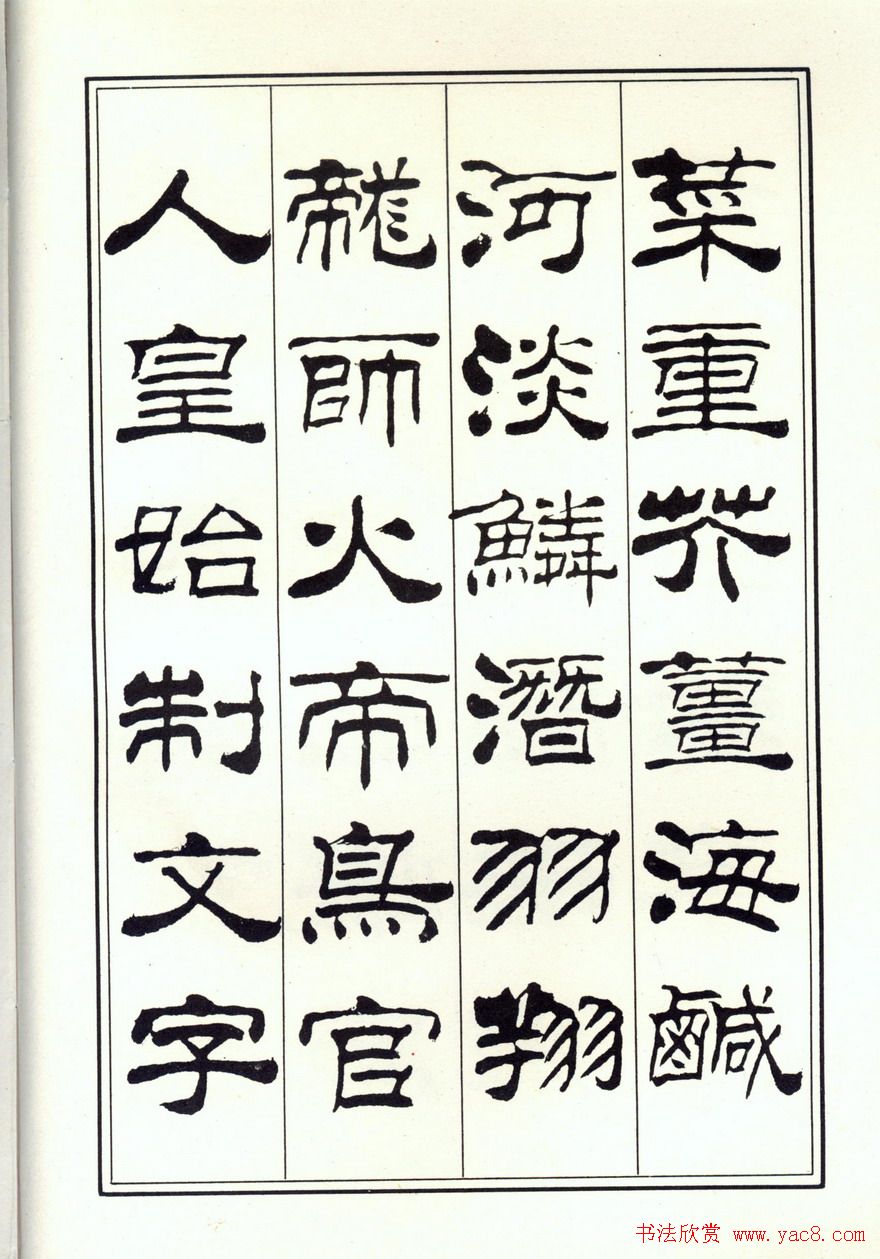 菜重芥薑海鹹
河淡鱗潛羽翔
龍師火帝鳥官
人皇始制文字
书法欣赏 www.yac8.com